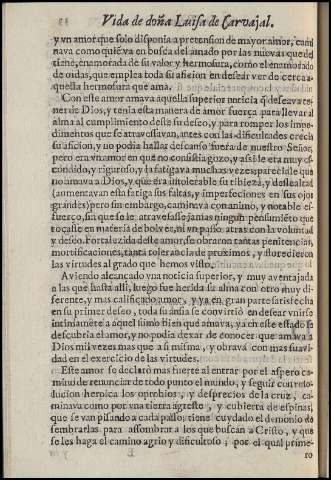 Vida de doña Luisa de Carvajal.
y vn amor que solo disponia a pretension de mayor amor, cami
naua como quiē va en busca del amado por las nueuas que del
tiene, enamorada de su valor y hermosura, como el enamorado
de oidas, que emplea toda su aficion en desear ver de cerca a-
quella hermosura que ama.
Con este amor amaua aquella superior noticia q̃ deseaua te-
ner de Dios, y tenia esta manera de amor fuerça para lleuar al
alma al cumplimiēto deste su deseo, y para romper los impe-
dimentos que se atrauesauan, antes con las dificultades crecia
su aficion, y no podia hallar descanso fuera de nuestro Señor,
pero era vn amor en quē no consistia gozo, y assi le era muy es-
condido, y riguroso, y la fatigaua muchas vezes, pareciale que
no amaua a Dios, y que era intolerable su tibieza, y deslealtad
(aumentauan esta fatiga sus faltas, y imperfeciones en sus ojos
grandes) pero sin embargo, caminaua con animo, y notable es-
fuerço, sin que se le atrauesasse jamas ningun pensamiēto que
tocasse en materia de boluer, ni vn passo atras con la voluntad
y deseo. Fortalezida deste amor, se obraron tantas penitencias,
mortificaciones, tanta tolerancia de proximos, y florecieron
las virtudes al grado que hemos visto.
Auiendo alcançado vna noticia superior, y muy auentajada
a las que hasta alli, luego fue herida su alma con otro muy di-
ferente, y mas calificado amor, y ya en gran parte satisfecha
en su primer deseo, toda su ansia se conuirtio en desear vnirse
intimamēte a aquel sumo bien que amaua, ya en este estado se
descubria el amor, y no podia dexar de conocer que amaua a
Dios mil vezes mas que a si misma, y obraua con mas suaui-
dad en el exercicio de las virtudes.
Este amor se declarò mas fuerte al entrar por el aspero ca-
mino de renunciar de todo punto el mundo, y seguir con reso-
lucion heroica los oprobios, y desprecios de la cruz, ca-
minaua como por vna tierra agreste, y cubierta de espinas,
que se van pisando a cada passo; tiene cuydado el demonio de
sembrarlas para assombrar a los que buscan a Cristo, y que
se les haga el camino agrio y dificultoso; por el qual prime-
ro